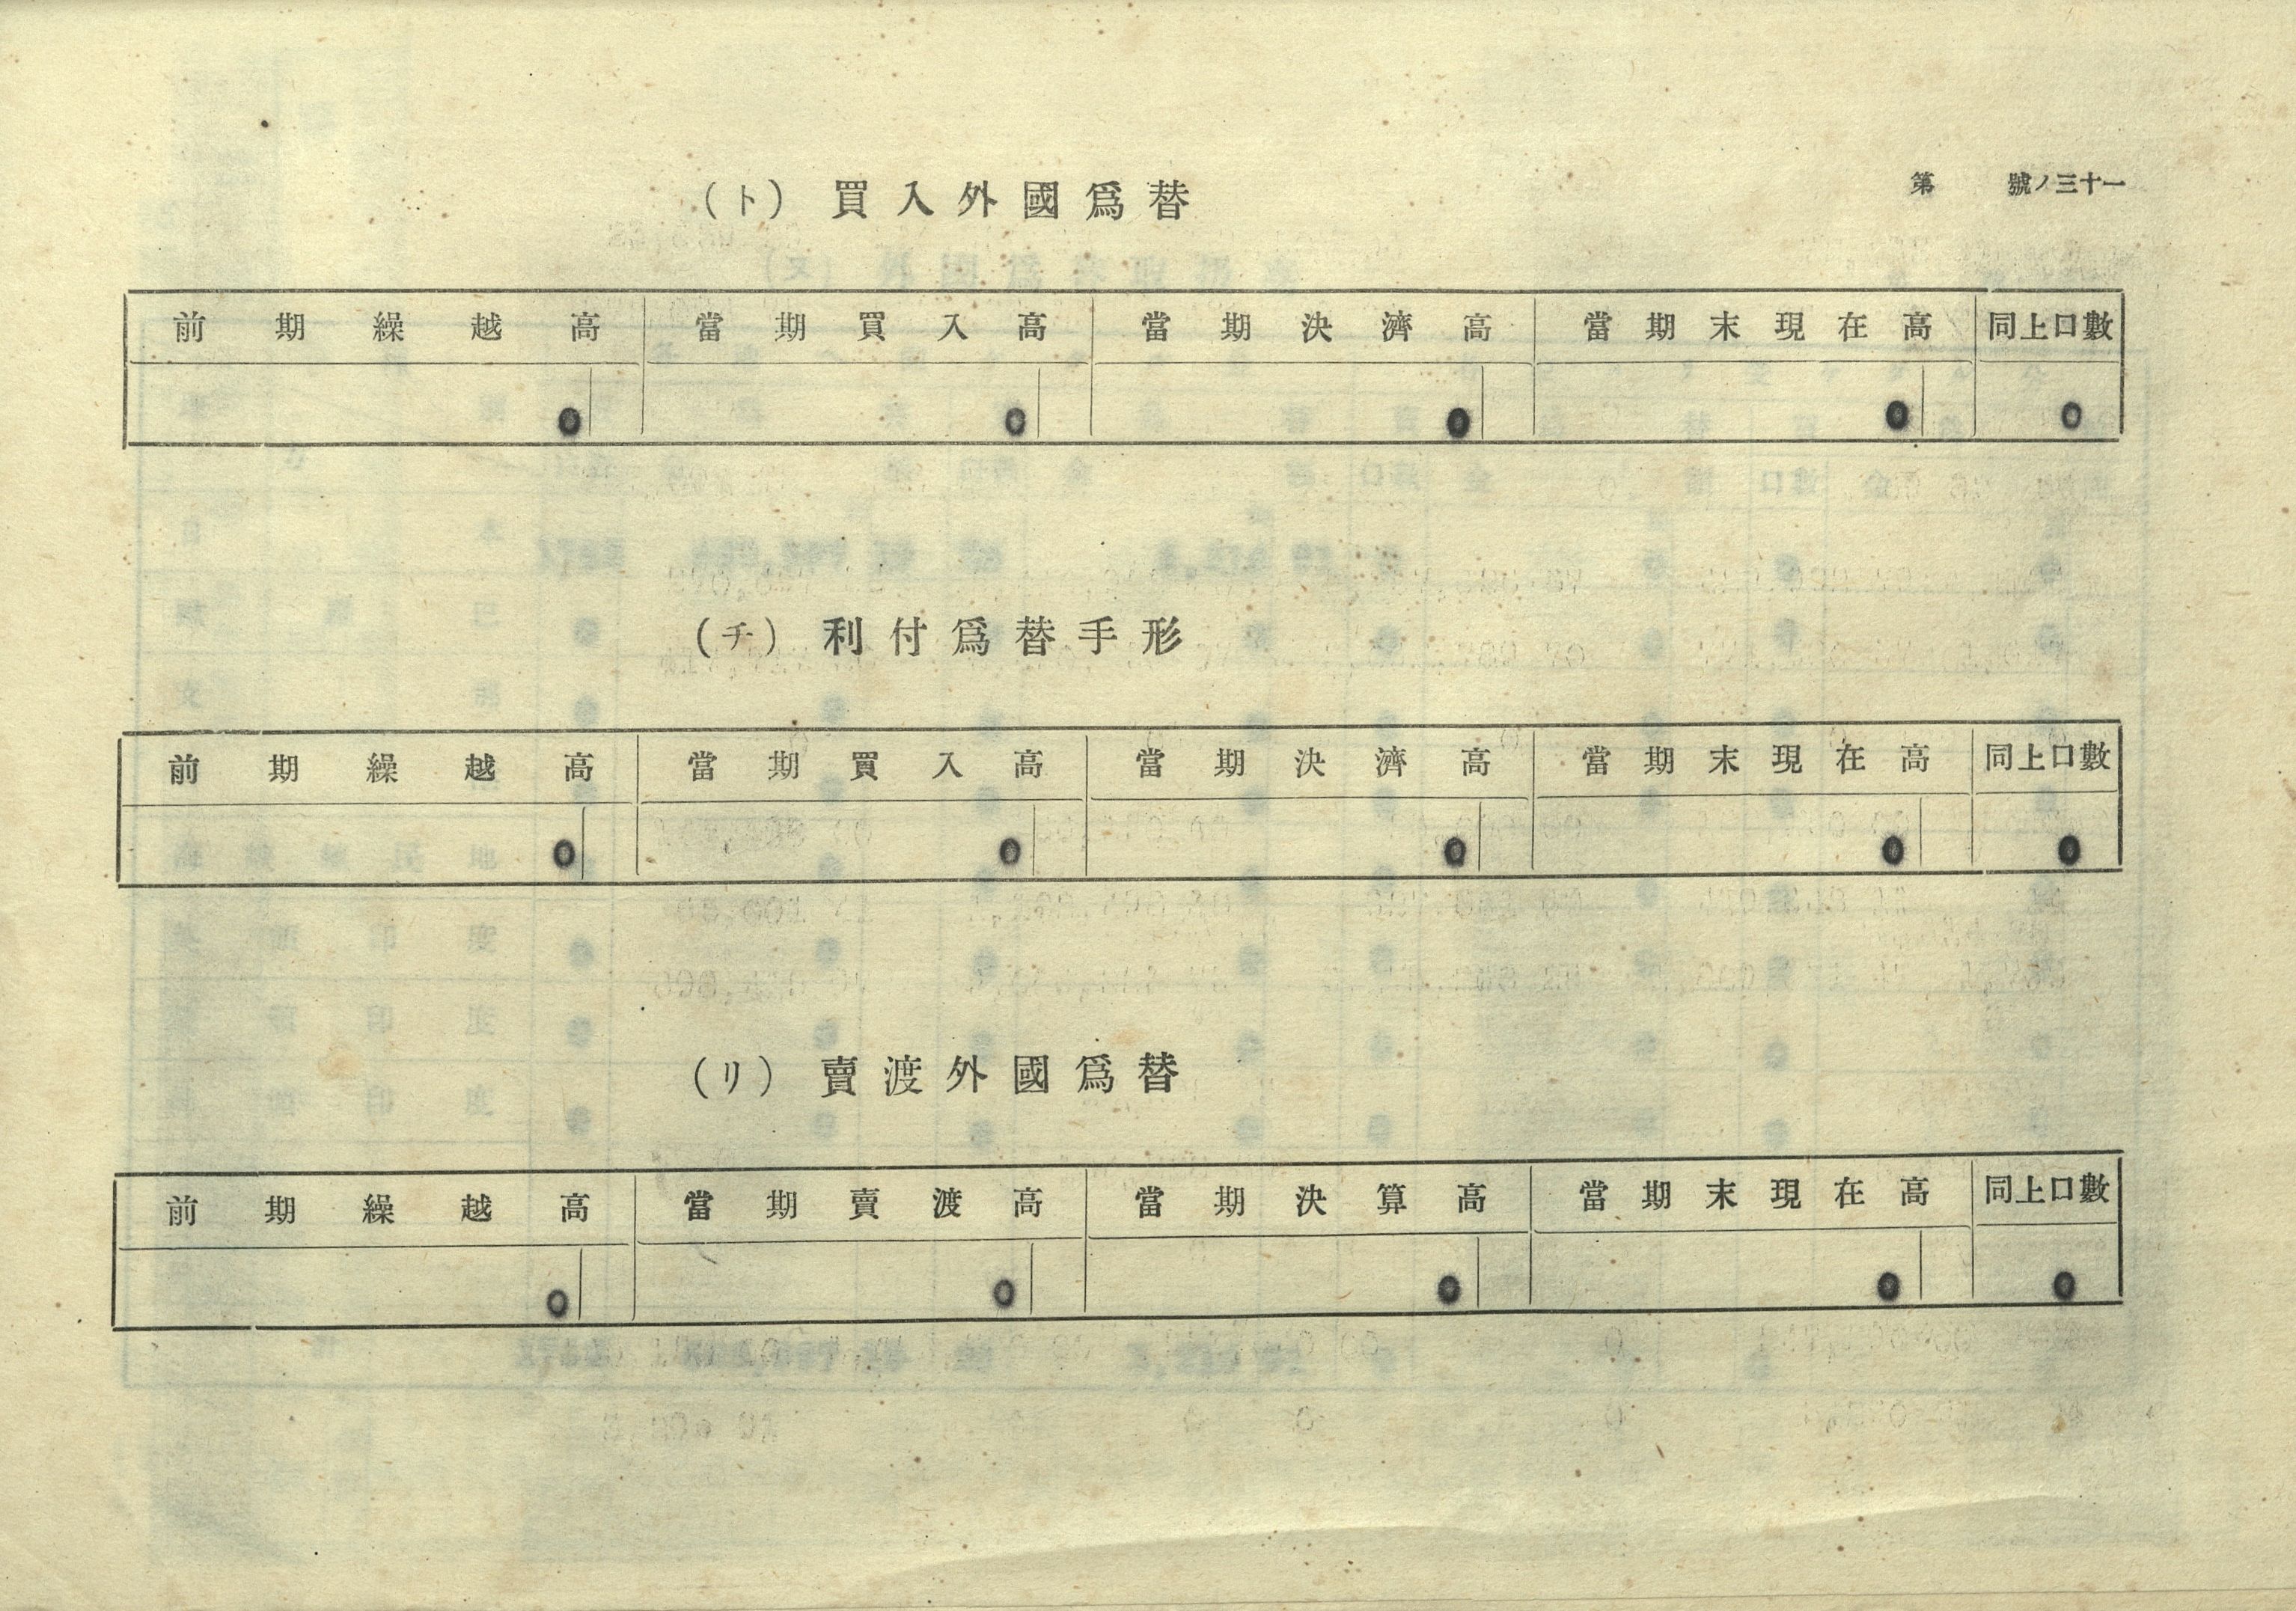 第　號ノ三十一
(ト) 買入外國爲替
前期繰越高 當期買入高 當期決濟高 當期末現在高 同上口數
0 0 0 0 0
(チ) 利付爲替手形
前期繰越高 當期買入高 當期決濟高 當期末現在高 同上口數
0 0 0 0 0
(リ) 賣渡外國爲替
前期繰越高 當期賣渡高 當期決算高 當期末現在高 同上口數
0 0 0 0 0